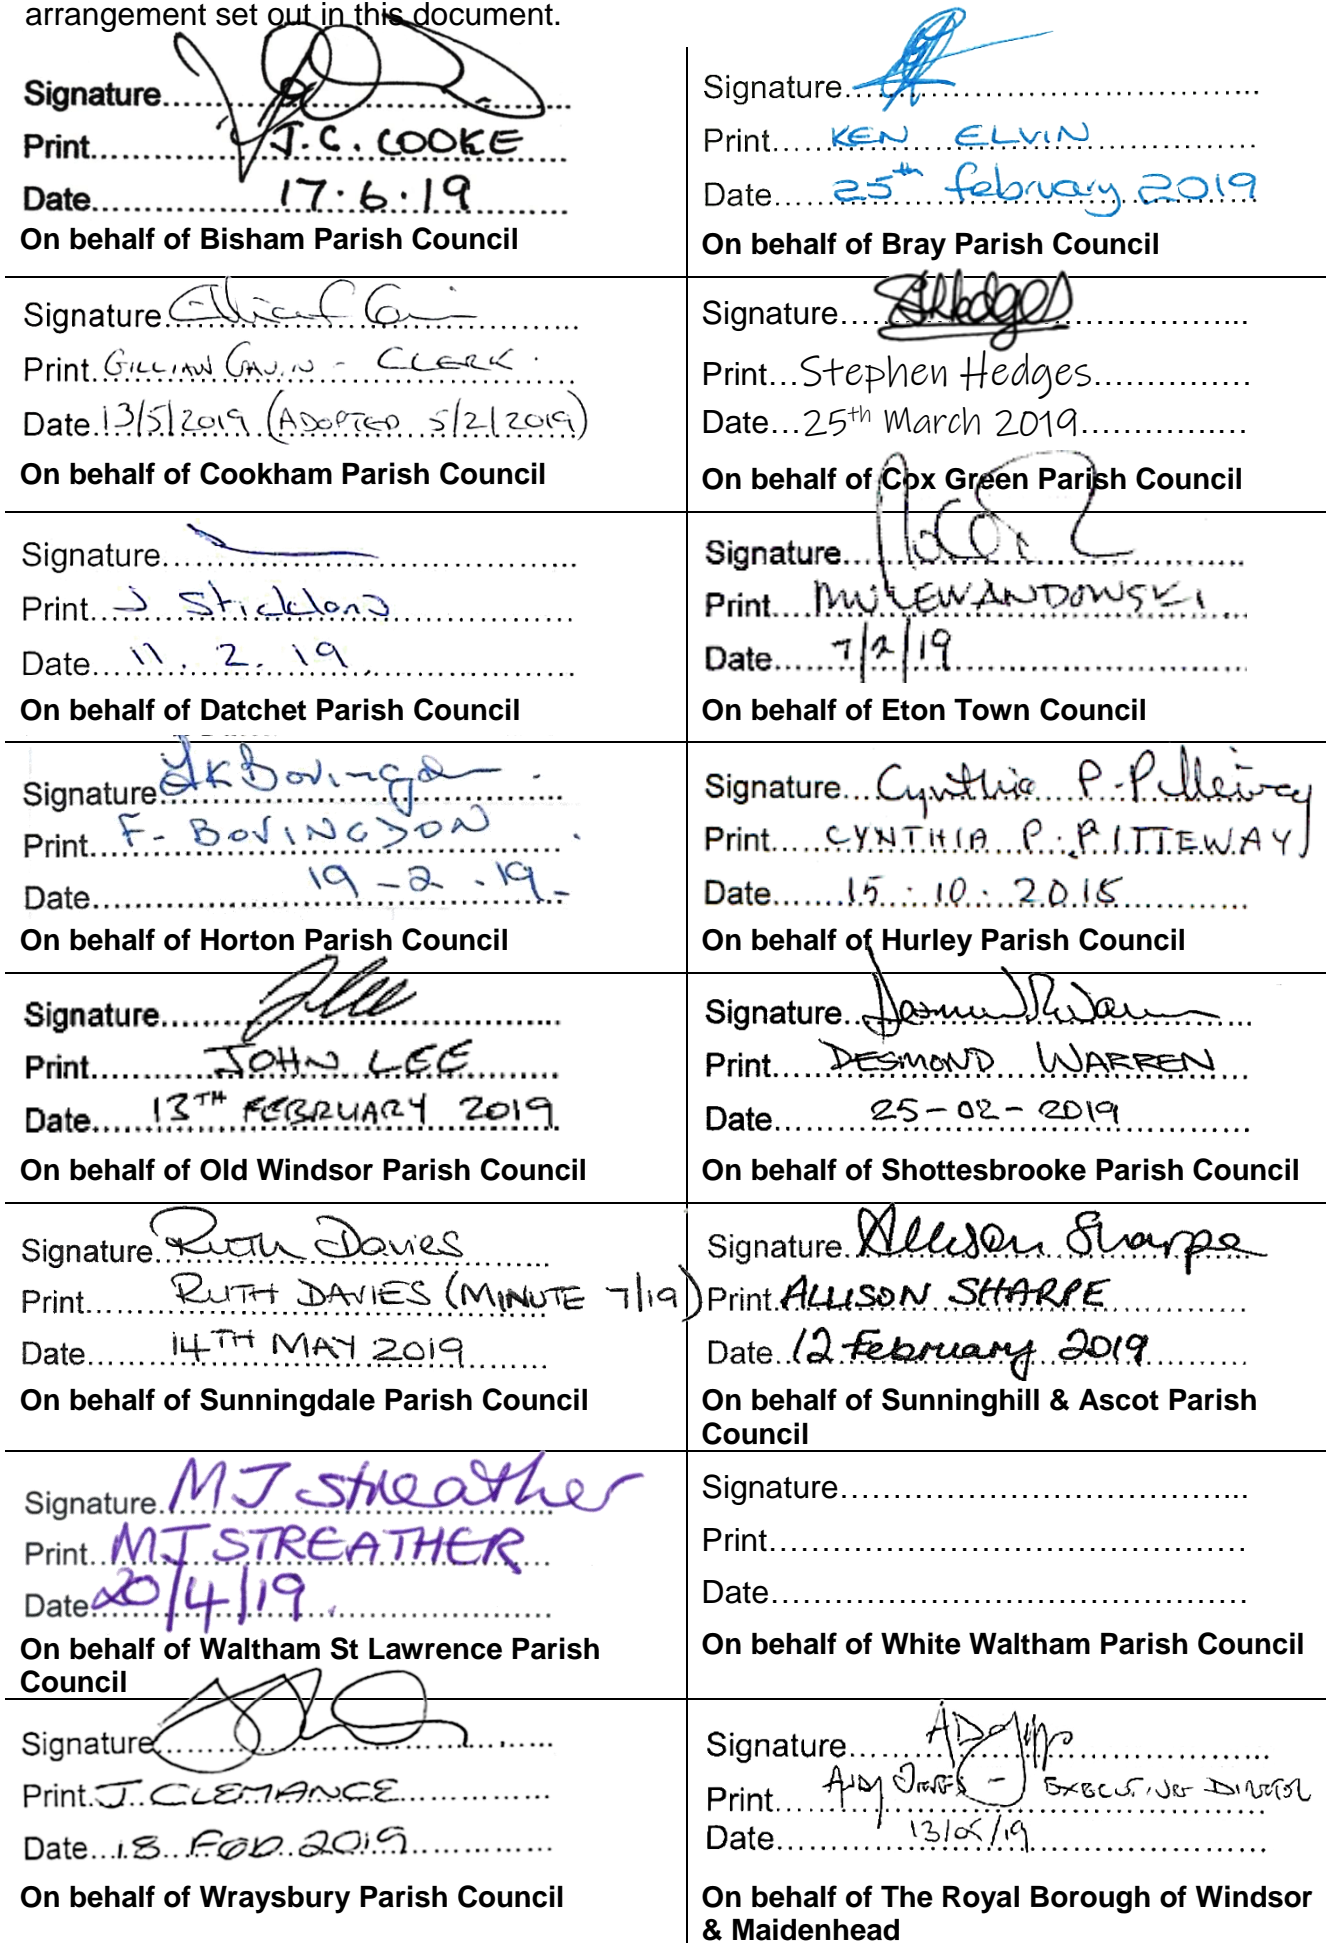 arrangement set out in this document.
Signature
Print J.C. COOKE
Date 17.6.19
On behalf of Bisham Parish Council
Signature
Print KEN ELVIN
Date 25th february 2019
On behalf of Bray Parish Council
Signature
Print GILLIAN GAVIN - CLERK.
Date 13/5/2019 (ADOPTED 5/2/2019)
On behalf of Cookham Parish Council
Signature SHedges
Print Stephen Hedges
Date 25th March 2019
On behalf of Cox Green Parish Council
Signature
Print J Stickland
Date 11.2.19
On behalf of Datchet Parish Council
Signature
Print MW LEWANDOWSKI
Date 7/2/19
On behalf of Eton Town Council
Signature FKBovingdon
Print F. BOVINGDON
Date 19-2.19
On behalf of Horton Parish Council
Signature Cynthia P. Pitteway
Print CYNTHIA P. PITTEWAY
Date 15.10.2018
On behalf of Hurley Parish Council
Signature JLee
Print JOHN LEE
Date 13TH FEBRUARY 2019
On behalf of Old Windsor Parish Council
Signature Desmond Warren
Print DESMOND WARREN
Date 25-02-2019
On behalf of Shottesbrooke Parish Council
Signature Ruth Davies
Print RUTH DAVIES (MINUTE 7/19)
Date 14TH MAY 2019
On behalf of Sunningdale Parish Council
Signature Allison Sharpe
Print ALLISON SHARPE
Date 12 February 2019
On behalf of Sunninghill & Ascot Parish
Council
Signature MJ Streather
Print MJ STREATHER
Date 20/4/19.
On behalf of Waltham St Lawrence Parish
Council
Signature
Print
Date
On behalf of White Waltham Parish Council
Signature
Print J. CLEMANCE
Date 18 FEB 2019
On behalf of Wraysbury Parish Council
Signature
Print - EXECUTIVE DIRECTOR
Date 13/05/19
On behalf of The Royal Borough of Windsor
& Maidenhead